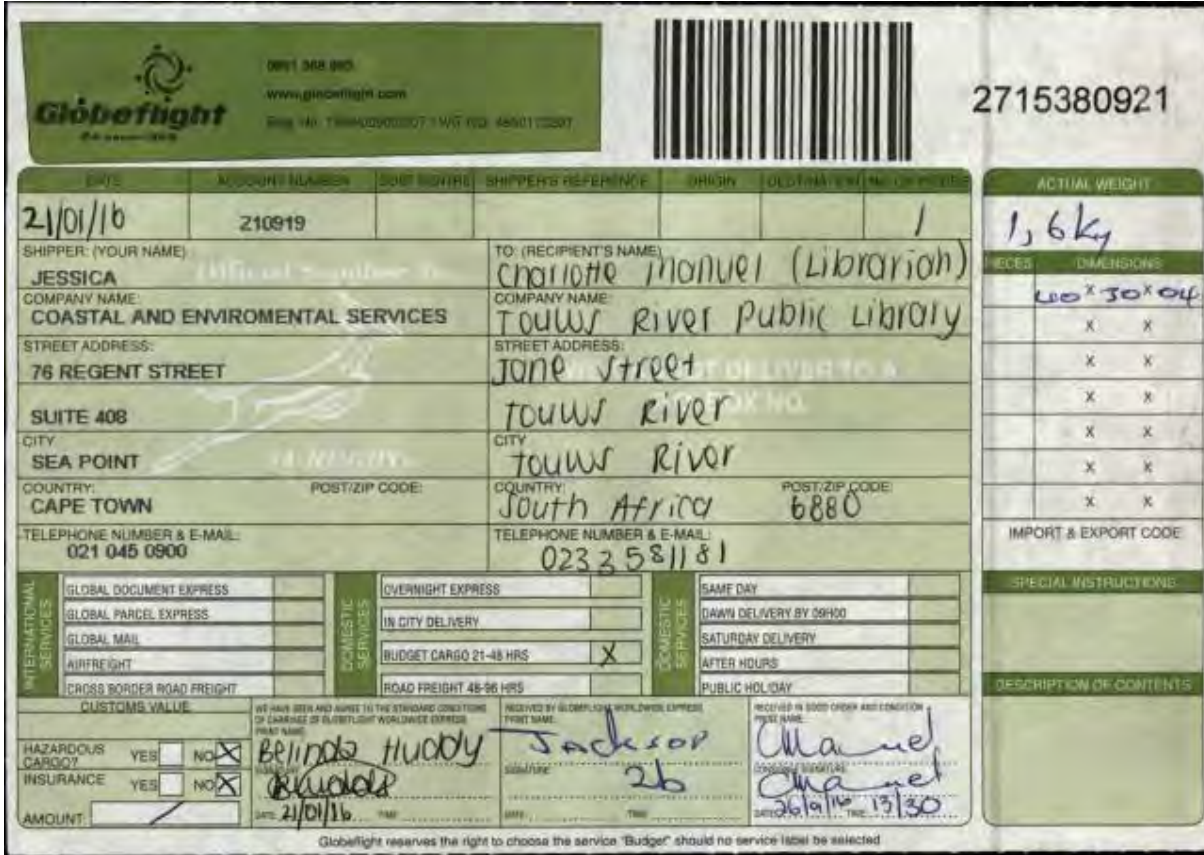 Globeflight
www.globeflight.com
2715380921
DATE ACCOUNT NUMBER COST CENTRE SHIPPER'S REFERENCE ORIGIN DESTINATION NO. OF PIECES
21/01/16 210919 1
ACTUAL WEIGHT
1,6kg
PIECES DIMENSIONS
40 x 30 x 04
x x
x x
x x
x x
x x
x x
IMPORT & EXPORT CODE
SPECIAL INSTRUCTIONS
DESCRIPTION OF CONTENTS
SHIPPER: (YOUR NAME)
JESSICA
COMPANY NAME:
COASTAL AND ENVIROMENTAL SERVICES
STREET ADDRESS:
76 REGENT STREET
SUITE 408
CITY
SEA POINT
COUNTRY: POST/ZIP CODE:
CAPE TOWN
TELEPHONE NUMBER & E-MAIL:
021 045 0900
TO: (RECIPIENT'S NAME)
Charlotte Manuel (Librarian)
COMPANY NAME:
Touws River Public Library
STREET ADDRESS:
Jane Street
Touws River
CITY
Touws River
COUNTRY: POST/ZIP CODE:
South Africa 6880
TELEPHONE NUMBER & E-MAIL:
023 3581181
INTERNATIONAL SERVICES
GLOBAL DOCUMENT EXPRESS
GLOBAL PARCEL EXPRESS
GLOBAL MAIL
AIRFREIGHT
CROSS BORDER ROAD FREIGHT
DOMESTIC SERVICES
OVERNIGHT EXPRESS
IN CITY DELIVERY
BUDGET CARGO 21-48 HRS X
ROAD FREIGHT 48-96 HRS
DOMESTIC SERVICES
SAME DAY
DAWN DELIVERY BY 09H00
SATURDAY DELIVERY
AFTER HOURS
PUBLIC HOLIDAY
CUSTOMS VALUE
HAZARDOUS CARGO? YES NO X
INSURANCE YES NO X
AMOUNT
WE HAVE SEEN AND AGREE TO THE STANDARD CONDITIONS
OF CARRIAGE OF GLOBEFLIGHT WORLDWIDE EXPRESS
PRINT NAME:
Belinda Huddy
DATE 21/01/16 TIME
RECEIVED BY GLOBEFLIGHT WORLDWIDE EXPRESS
PRINT NAME:
Jackson
SIGNATURE
26
DATE TIME
RECEIVED IN GOOD ORDER AND CONDITION
PRINT NAME:
CManuel
CONSIGNEE SIGNATURE
CManuel
DATE TIME 13/30
Globeflight reserves the right to choose the service "Budget" should no service label be selected